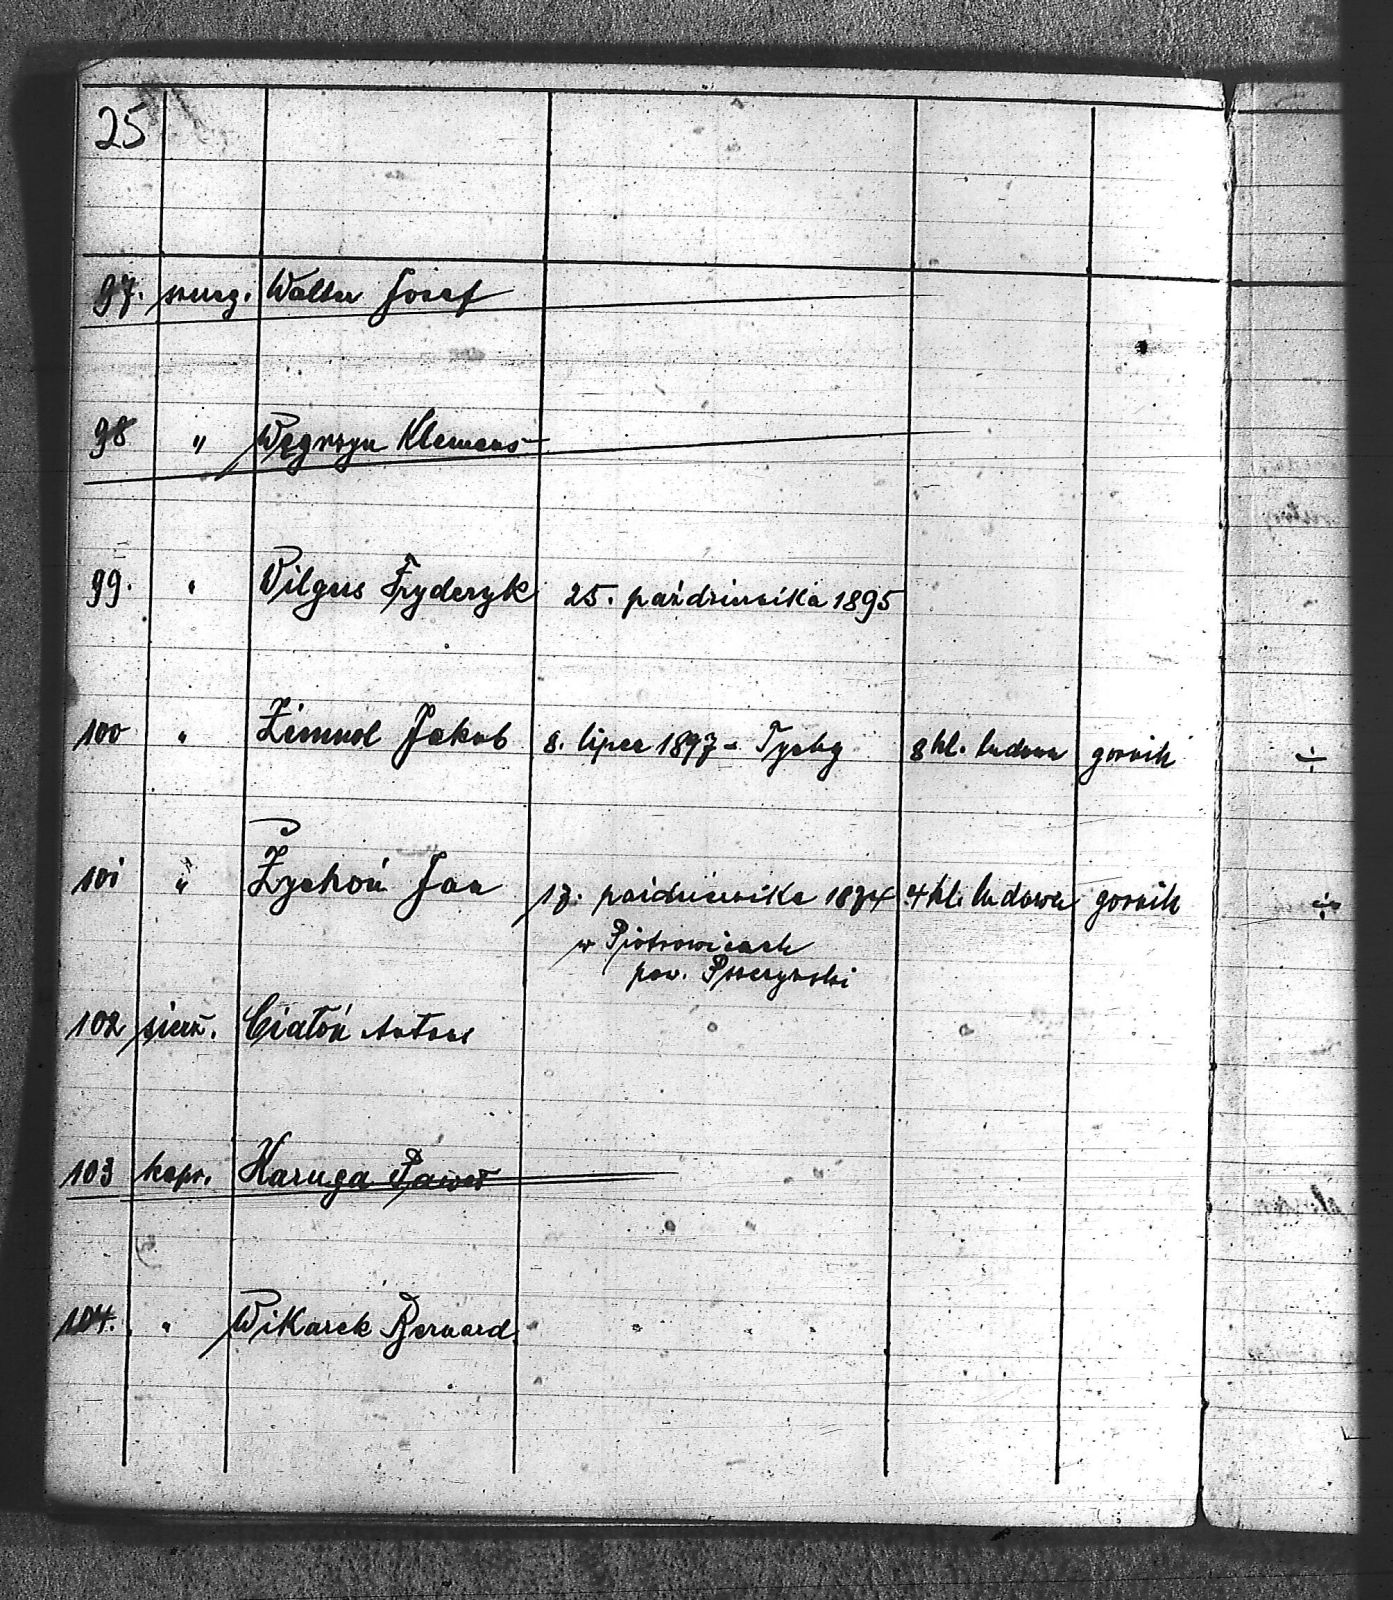 25
97. szereg. Walter Josef
98 " Węgrzyn Klemens
99. " Wilgus Fryderyk 25. października 1895
100 " Zimnol Jakob 8. lipca 1897 - Tychy 8 kl. ludowa gornik
101 " Zychoń Jan 17. października 1874 4 kl. ludowa gornik
w Piotrowicach
pow. Pszczyński
102 sierż. Ciatoń Antoni
103 kapr. Haruga Paweł
104. " Wikarek Bernard